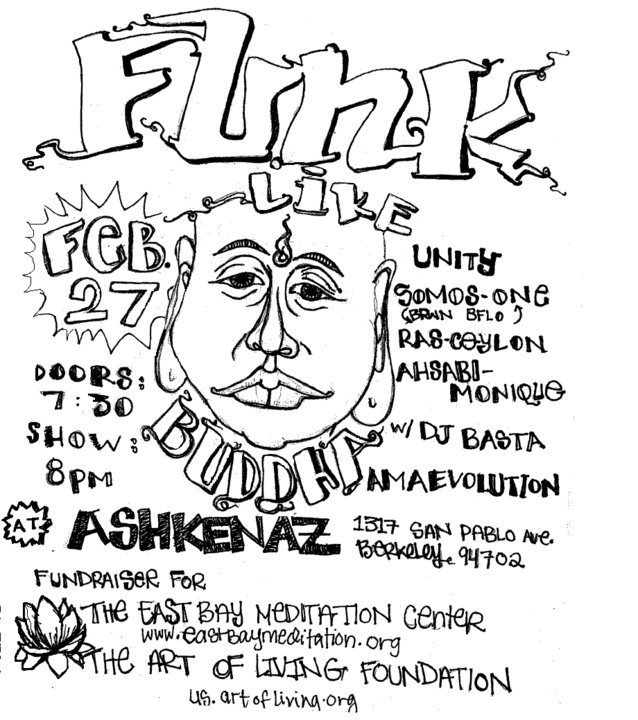 Funk
Like
Buddha
Feb.
27
Doors:
7:30
Show:
8pm
Unity
Somos-One
(Brwn Bflo)
Ras-Ceylon
Ahsabi-
Monique
w/ DJ Basta
Amaevolution
At
Ashkenaz
1317 San Pablo Ave.
Berkeley. 94702
Fundraiser for
The East Bay Meditation Center
www.eastbaymeditation.org
The Art of Living Foundation
us.artofliving.org